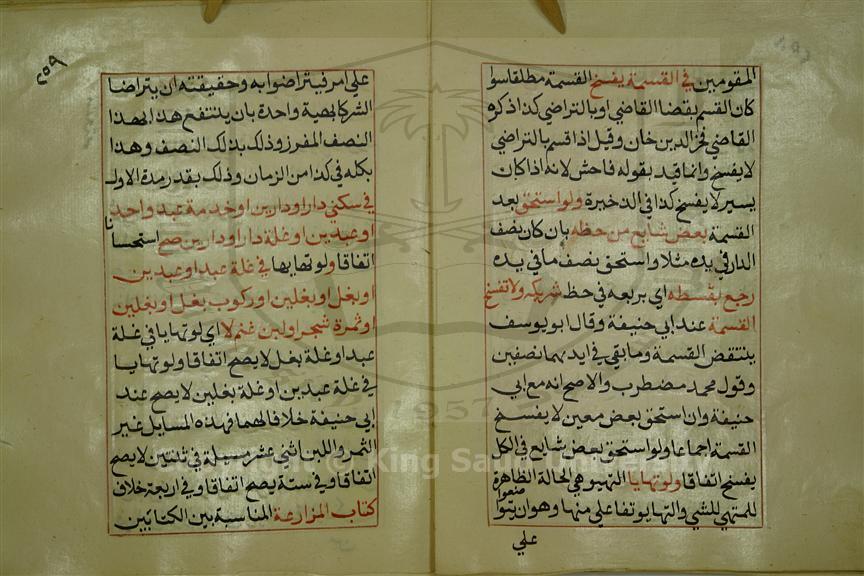 المقومين في القسمة يفسخ القسمة مطلقا سوا
كان القسم بقضا القاضي او بالتراضي كذا ذكره
القاضي فخر الدين خان وقيل اذا قسم بالتراضي
لا يفسخ وانما قيد بقوله فاحش لانه اذا كان
يسير لا يفسخ كذا في الذخيرة ولو استحق بعد
القسمة بعض شايع من حظه بان كان نصف
الدار في يده مثلا واستحق نصف ما في يده
رجع بقسطه اي بربعه في حظ شريكه ولا تفسخ
القسمة عند ابي حنيفة وقال ابو يوسف
ينتقض القسمة وما بقي في ايديهما نصفين
وقول محمد مضطرب والاصح انه مع ابي
حنيفة وان استحق بعض معين لا يفسخ
القسمة اجماعا ولو استحق بعض شايع في الكل
يفسخ اتفاقا ولو تهايا التهيو هي لحالة الظاهرة
للمتهي للشي والتهايو تفاعلي منها وهو ان يتوا
ضعوا
علي
٢٥٩
علي امر فيتراضوا به وحقيقته ان يتراضا
الشركا بهية واحدة بان ينتفع هذا بهذا
النصف المفرز وذلك بذلك النصف وهذا
بكله في كذا من الزمان وذلك بقدر مدة الاول
في سكني دار او دارين او خدمة عبد واحد
او عبدين او غلة دار او دارين صح استحسانا
اتفاقا ولو تهايها في غلة عبد او عبدين
او بغل او بغلين او ركوب بغل او بغلين
او ثمرة شجر او لبن غنم لا اي لو تهايا في غلة
عبد او غلة بغل لا يصح اتفاقا ولو تهايا
في غلة عبدين او غلة بغلين لا يصح عند
ابي حنيفة خلافا لهما فهذه المسايل غير
الثمر واللبن اثني عشر مسيلة في ثنتين لا يصح
اتفاقا وفي ستة يصح اتفاقا وفي اربعة خلاف
كتاب المزارعة المناسبة بين الكتابين
1957
Copyright © King Saud University